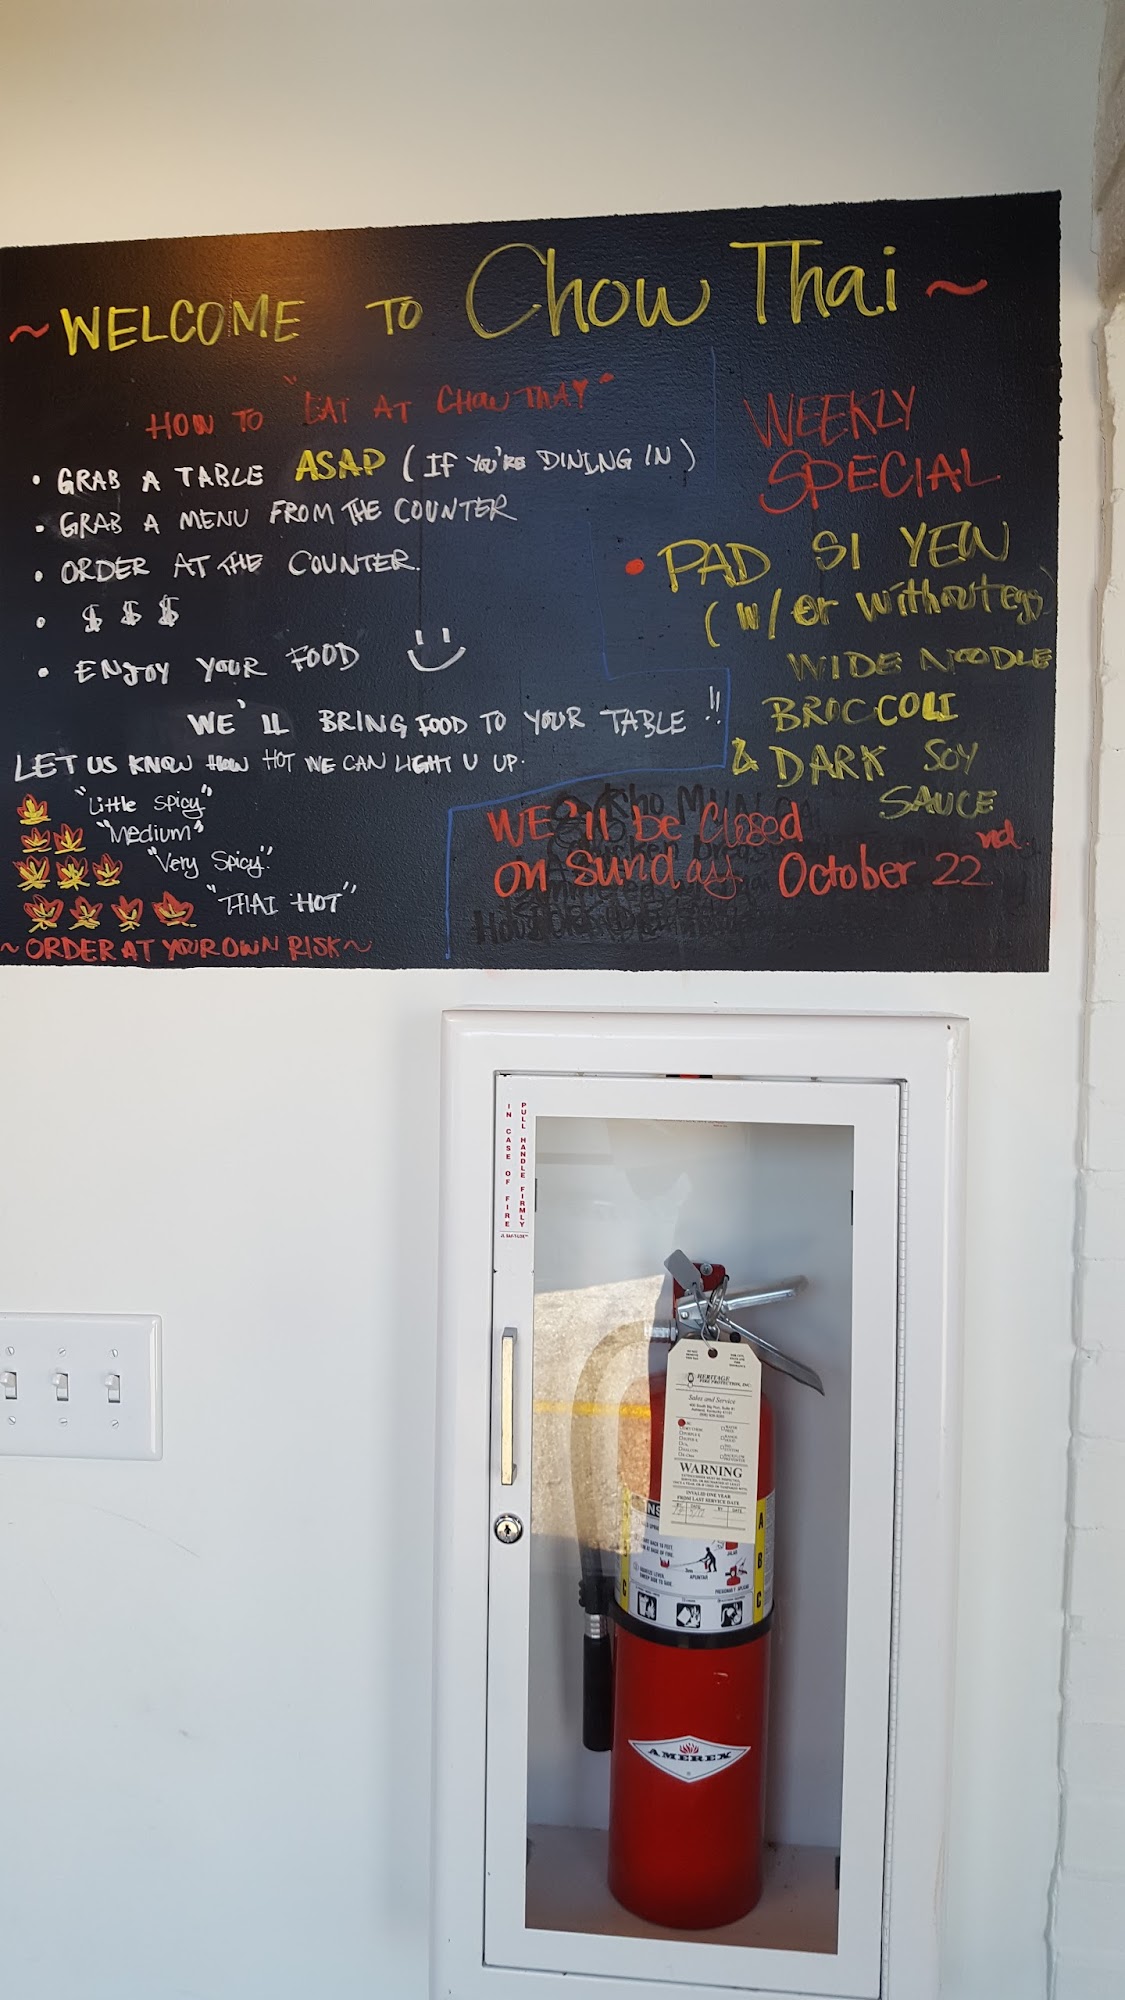 ~ WELCOME TO Chow Thai ~
HOW TO "EAT AT CHOW THAY"
• GRAB A TABLE ASAP (IF YOU'RE DINING IN)
• GRAB A MENU FROM THE COUNTER
• ORDER AT THE COUNTER.
• $ $ $
• ENJOY YOUR FOOD
WE'LL BRING FOOD TO YOUR TABLE !!
LET US KNOW HOW HOT WE CAN LIGHT U UP.
"Little Spicy"
"Medium"
"Very Spicy"
"THAI HOT"
~ ORDER AT YOUR OWN RISK ~
WEEKLY
SPECIAL
• PAD SI YEW
(W/ or without egg)
WIDE NOODLE
BROCCOLI
& DARK SOY
SAUCE
WE'll be Closed
on Sunday October 22nd.
PULL HANDLE FIRMLY
IN CASE OF FIRE
HERITAGE
FIRE PROTECTION, INC.
Sales and Service
WARNING
INVALID ONE YEAR
FROM LAST SERVICE DATE
BY DATE BY DATE
A
B
C
APUNTAR
AMEREX